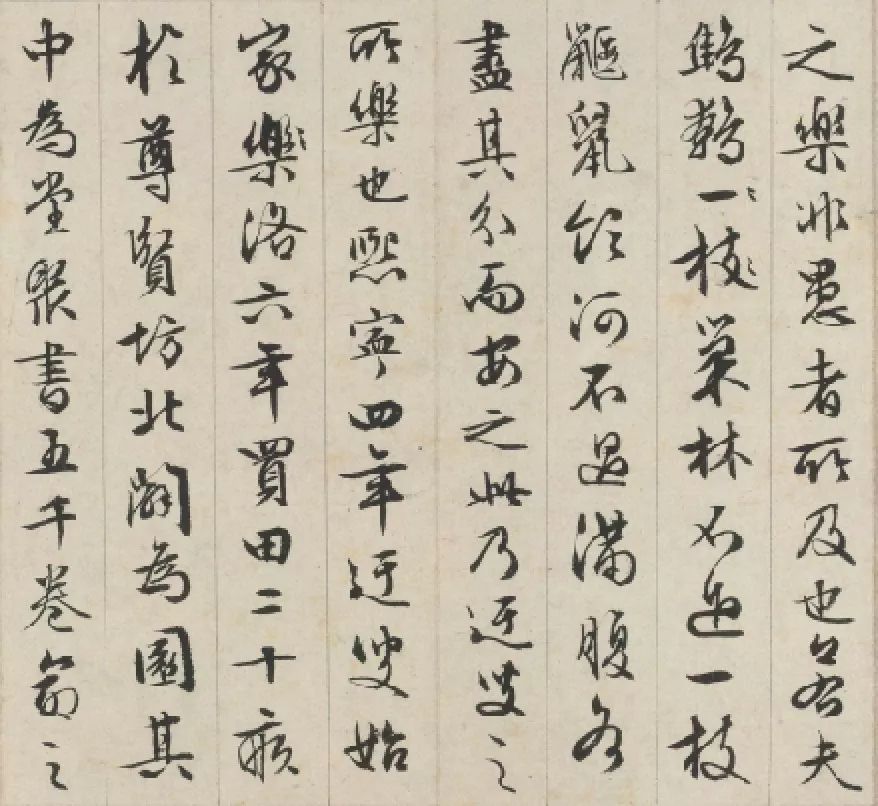 之樂非愚者所及也若夫
鷦鷯一枝巢林不過一枝
鼴鼠飲河不過滿腹各
盡其分而安之此乃迂叟之
所樂也熙寧四年迂叟始
家樂洛六年買田二十畝
於尊賢坊北闢為園其
中為堂聚書五千卷命之